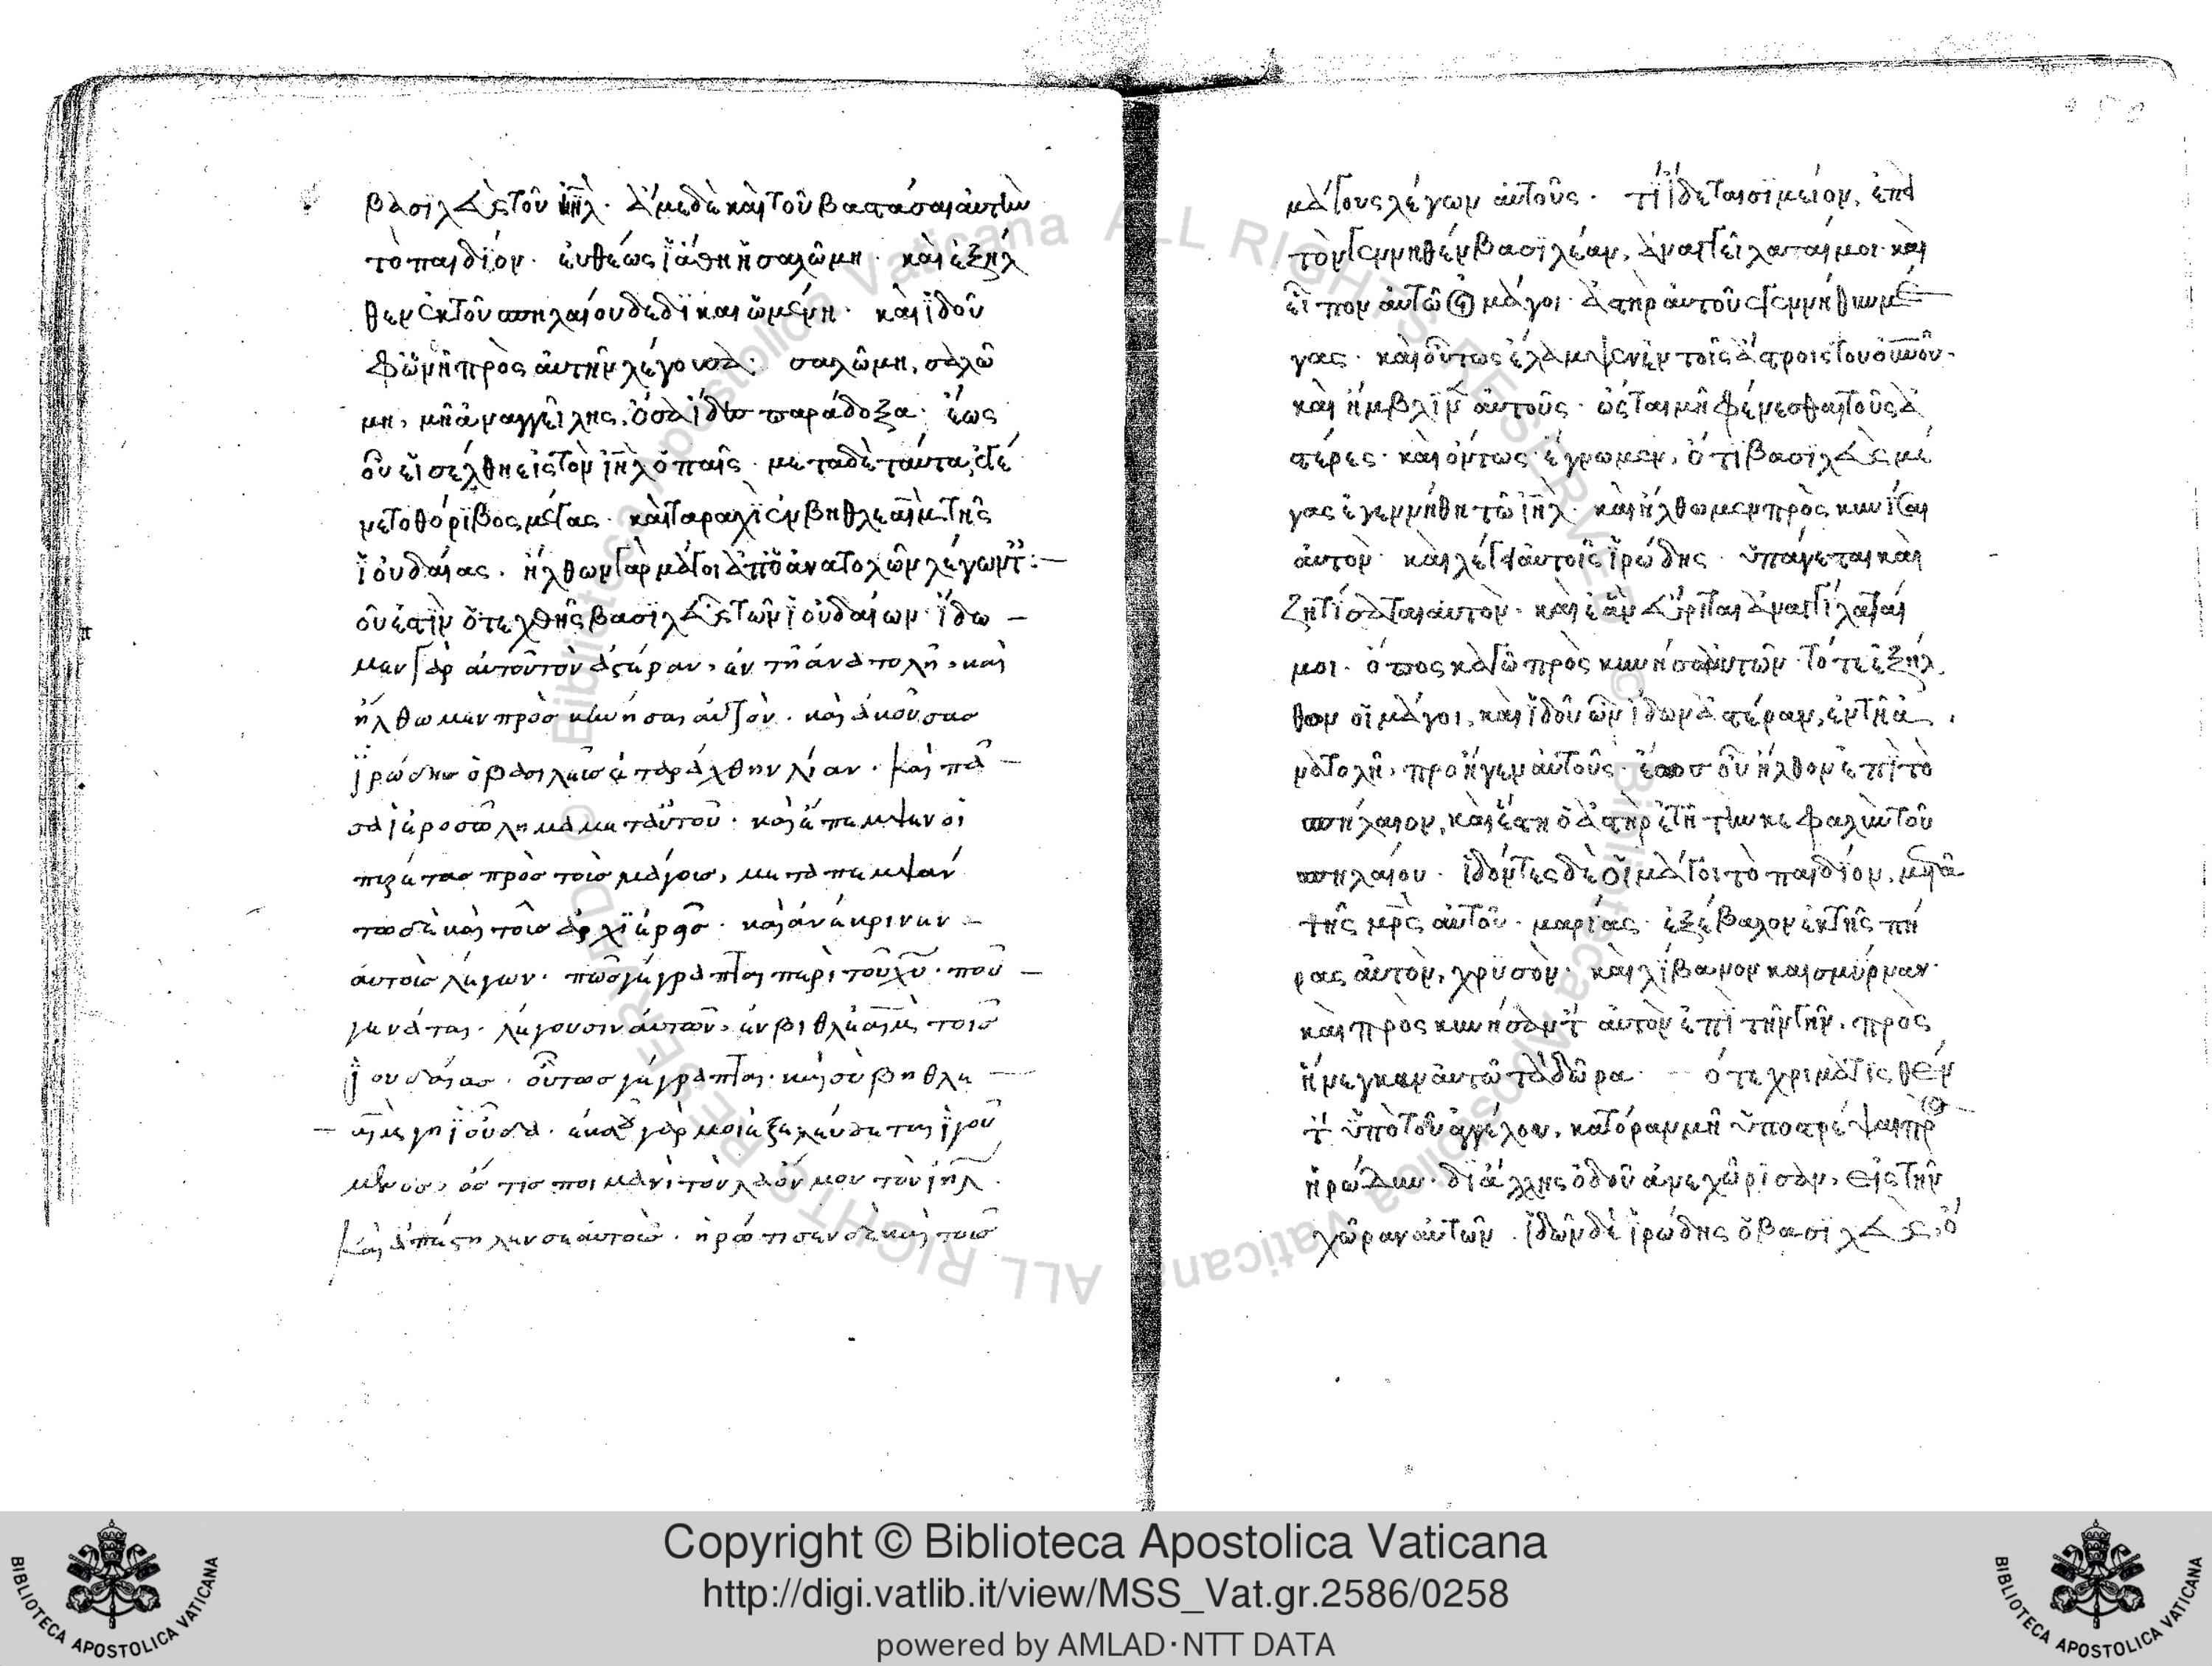 βασϊλεὺς τοῦ ιη̅λ· ἅμεδὲ καὶ τοῦ βαστάσαι αὐτὴν
τὸ παιδίον· εὐθέως ϊάθη ἡ σαλῶμη· καὶ ἐξῆλ
θεν ἐκ τοῦ σπηλαίου δεδϊκαιωμένη· καὶ ϊδοῦ
φῶνὴ πρὸς αὐτὴν λέγουσα· σαλῶμη, σαλῶ
μη, μὴ ἀναγγεῖλης, ὅσα ἴδες παράδοξα· ἕως
οὗ εἰσέλθη εἰς τὸν ιη̅λ ὁ παῖς· μεταδὲ ταῦτα, ἐγέ
νετο θόρϊβος μέγας· καὶ ταραχὶ ἐν βηθλεαὶμ τῆς
ϊουδαίας· ἦλθων γὰρ μάγοι ἀπὸ ἀνατολῶν λέγωντ:
οὗ ἐστὶν ὁ τεχθῆς βασϊλεὺς τῶν ϊουδαίων· ἴδω
μεν γὰρ αὐτοῦ τὸν ἀστέραν, ἐν τῆ ἀνατολῆ, καὶ
ἤλθωμεν προσκυνήσαι αὐτὸν· καὶ ἀκούσας
ϊρώδης ὁ βασιλεῦς ἐταράχθην λίαν· καὶ πᾶ
σα ϊεροσῶλημα μετ᾽αὐτοῦ· καὶ ἔπεμψεν οἱ
πιρέτας πρὸς τοὺς μάγους, μεταπεμψάν
τος δὲ καὶ τοῖς ἀρχϊερεῖς· καὶ ἀνέκρινεν
αὐτοῖς λέγων· πῶς γέγραπται περὶ τοῦ χυ̅· ποῦ
γενάται· λέγουσιν αὐτῶν, ἐν βιθλεαὶμ τοῖς
ϊουδαίας· οὕτως γέγραπται· καὶ σὺ βηθλε
αὶμ γῆ ϊοῦδα· ἐκ σοῦ γάρ μοι ἐξελεύσεται ϊγοῦ
μενος, ὅς τις ποιμανὶ τὸν λαόν μου τὸν ιη̅λ·
καὶ ἀπέστηλεν σε αὐτοῖς· ἠρώτισεν δὲ καὶ τοῖς
μάγους λέγων αὐτοῦς· τί ἴδεται σϊμείον, ἐπὶ
τὸν γεννηθέν βασϊλέαν, ἀναγγεὶλαταί μοι· καὶ
εἶπον αὐτῶ οἱ μάγοι· ἀστὴρ αὐτοῦς γεννήθη μέ
γας· καὶ οὕτως ἔλαμψεν ἐν τοῖς ἄστροις τοῦ οὐνοῦ·
καὶ ἤμβλϊν αὐτοῦς· ὥσται μὴ φένεσθαι τοῦς ἀ
στέρες· καὶ οὕτως ἔγνωμεν, ὅτι βασϊλεὺς μέ
γας ἐγεννήθη τῶ ιη̅λ· καὶ ἤλθωμεν προσκυνίσαι
αὐτὸν· καὶ λέγει αὐτοῖς ϊρώδης· ὑπάγεται καὶ
ζητίσαται αὐτὸν· καὶ ἐὰν εὕριται ἀναγγίλαταί
μοι· ὅπος καγῶ προσκυνήσω αὐτῶν· τότε ἐξῆλ
θον οἱ μάγοι, καὶ ϊδοῦ ὧν ἴδων ἀστέραν, ἐν τῆ ἀ
νατολῆ, προῆγεν αὐτοῦς· ἕως οὗ ἤλθον ἐπὶ τὸ
σπήλαιον, καὶ ἔστη ὁ ἀστὴρ ἐπὶ τὴν κεφαλὴν τοῦ
σπηλαίου· ϊδόντες δὲ οἱ μάγοι τὸ παιδίον, μετὰ
τῆς μρ̅ς αὐτοῦ· μαρίας· ἐξέβαλον ἐκ τῆς πή
ρας αὐτὸν, χρϋσὸν· καὶ λίβανον καὶ σμύρναν·
καὶ προσκυνήσαντ αὐτὸν ἐπὶ τὴν γῆν, προσ
ήνεγκαν αὐτῶ τὰ δῶρα· ὅτε χριμάτισθέν
τ ὑπὸ τοῦ ἀγγέλου, κατόραμμὴ ὑποστρέψαι πρ
ἡρώδην· δϊάλλης ὁδοῦ ἀνεχῶρϊσαν, εἰς τὴν
χῶραν αὐτῶν· ϊδῶν δὲ ϊρώδης ὁ βασϊλεὺς, ὅ
Copyright © Biblioteca Apostolica Vaticana
http://digi.vatlib.it/view/MSS_Vat.gr.2586/0258
powered by AMLAD·NTT DATA
BIBLIOTECA APOSTOLICA VATICANA
BIBLIOTECA APOSTOLICA VATICANA